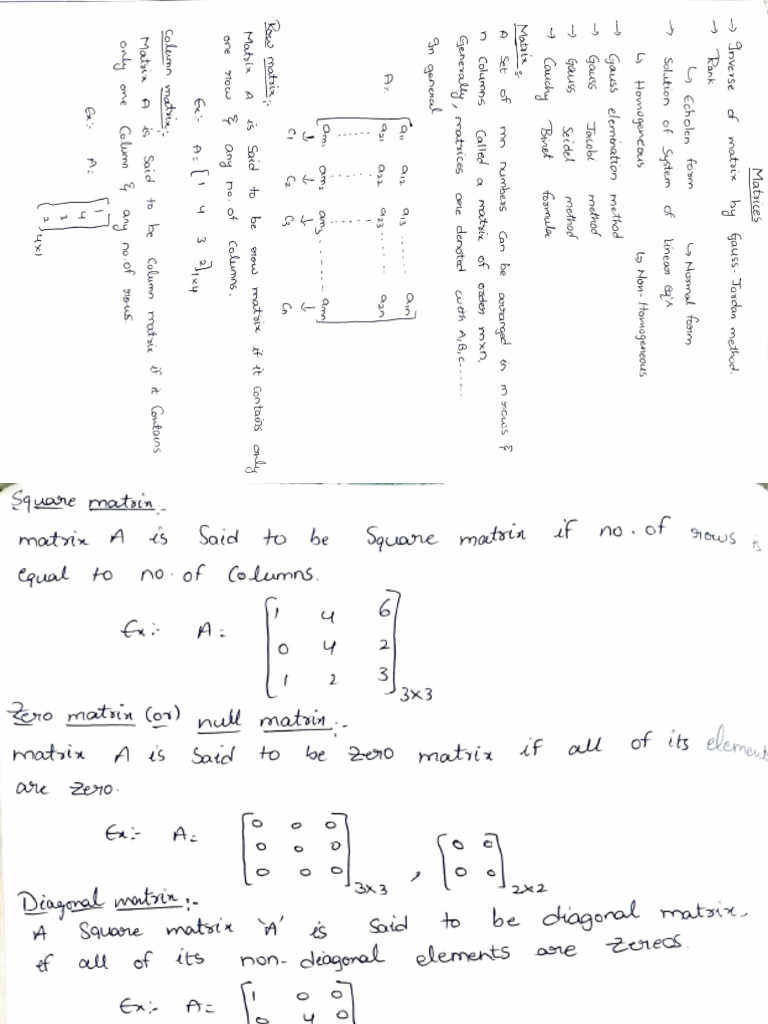 Matrices
→ Inverse of matrix by Gauss-Jordan method.
→ Rank
↳ Echolen form ↳ Normal form
→ Solution of System of linear eq's
↳ Homogeneous ↳ Non-Homogeneous
→ Gauss elemination method
→ Gauss Jacobi method
→ Gauss Seidel method
→ Cauchy Binet formula
Matrix:
A Set of mn numbers can be arranged in m rows &
n columns called a matrix of order m×n.
Generally, matrices are denoted with A,B,C......
In general
A= [a11 a12 a13 ...... a1n
a21 a22 a23...... a2n
am1 am2 am3 ...... amn]
C1 C2 C3 Cn
Row matrix:
Matrix A is Said to be row matrix if it contains only
one row & any no. of columns.
Ex:- A= [1 4 3 2]1×4
Column matrix:
Matrix A is Said to be Column matrix if it Contains
only one Column & any no. of rows.
Ex:- A= [1
4
3
2]4×1
Square matrix:-
matrix A is Said to be Square matrix if no. of rows is
equal to no. of Columns.
Ex:- A= [1 4 6
0 4 2
1 2 3]3×3
Zero matrix (or) null matrix:-
matrix A is Said to be Zero matrix if all of its elements
are Zero.
Ex:- A= [0 0 0
0 0 0
0 0 0]3×3 , [0 0
0 0]2×2
Diagonal matrix:-
A Square matrix 'A' is Said to be diagonal matrix,
if all of its non-diagonal elements are Zeroes.
Ex:- A= [1 0 0
0 4 0